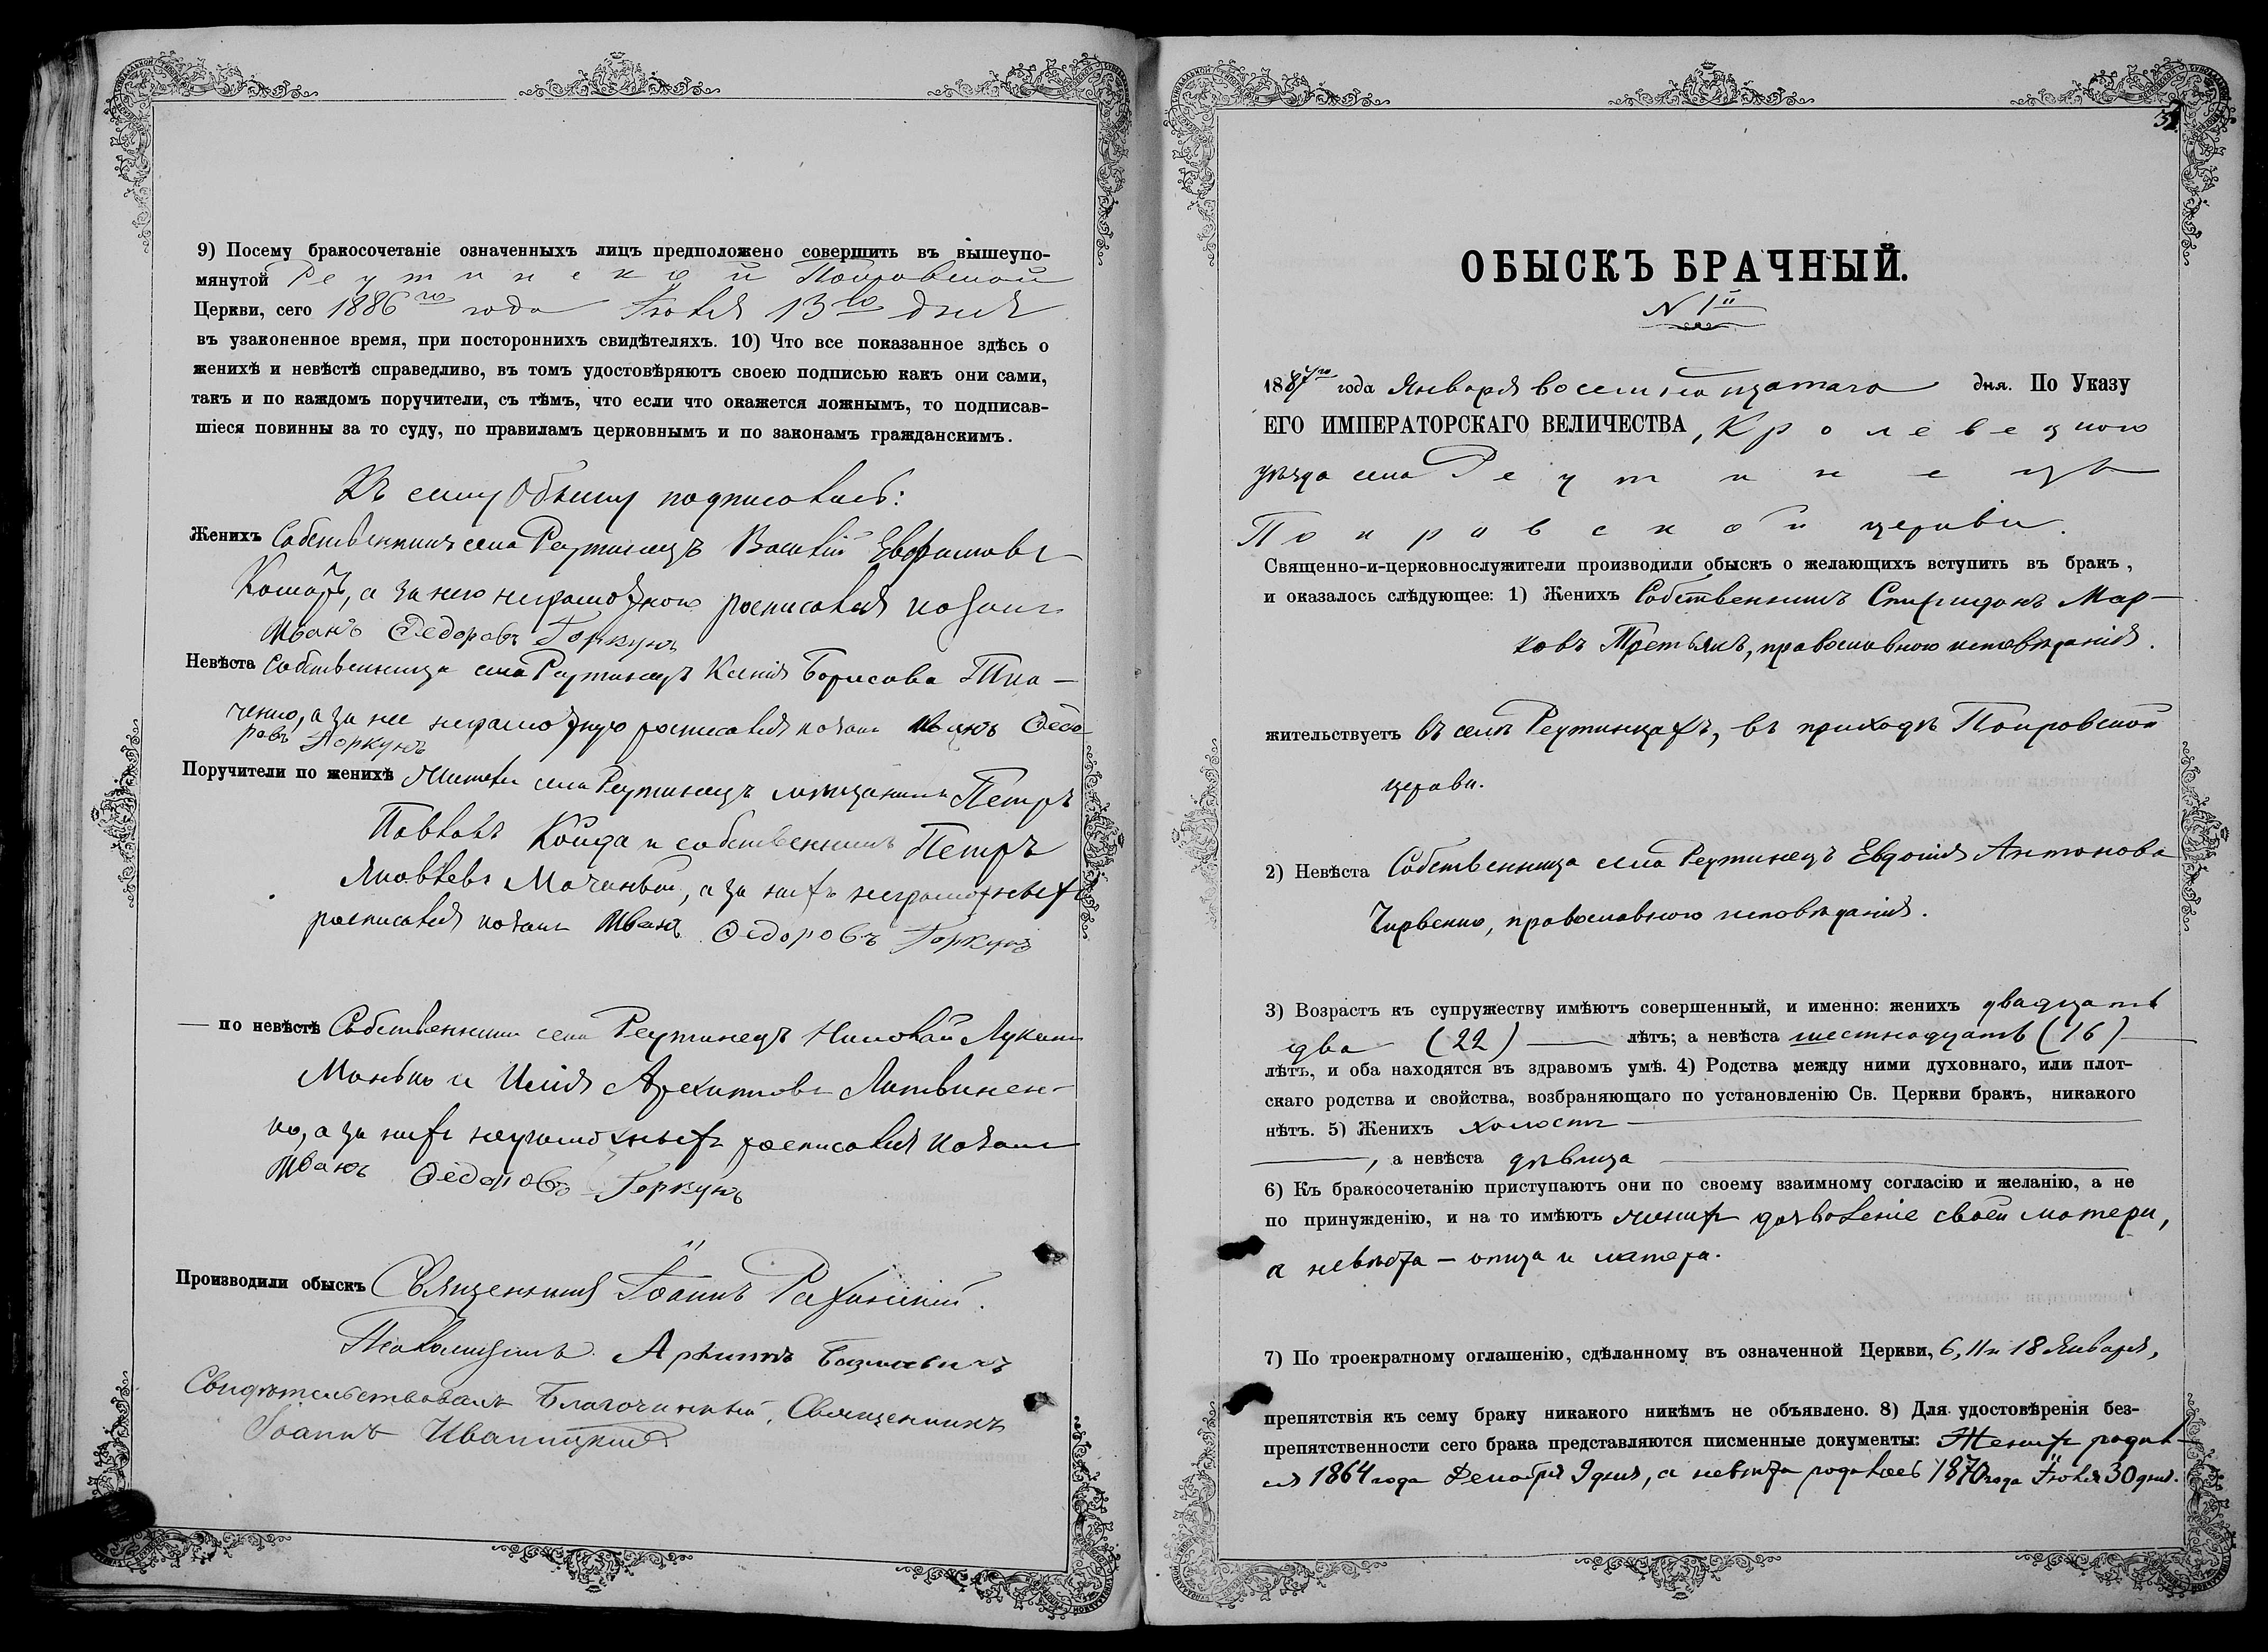 9) Посему бракосочетаніе означенныхъ лицъ предположено совершить въ вышеупо-
мянутой Реутинской Покровской
Церкви, сего 1886го года Іюля 13го дня
въ узаконенное время, при постороннихъ свидѣтеляхъ. 10) Что все показанное здѣсь о
женихѣ и невѣстѣ справедливо, въ томъ удостовѣряютъ своею подписью какъ они сами,
такъ и по каждомъ поручители, съ тѣмъ, что если что окажется ложнымъ, то подписав-
шіеся повинны за то суду, по правиламъ церковнымъ и по законамъ гражданскимъ.
Къ сему обыску подписались:
Женихъ Собственникъ села Реутинецъ Василій Евфимовъ
а за него неграмотнаго росписался козакъ
Иванъ Федоровъ Горкунъ
Невѣста Собственница села Реутинецъ Ксенія Борисова Тка-
ченко, а за нее неграмотную росписался козакъ Иванъ Федо
ровъ Горкунъ
Поручители по женихѣ Жители села Реутинецъ мѣщанинъ Петръ
Павловъ Койда и собственникъ Петръ
Яковлевъ а за нихъ неграмотныхъ
росписался козакъ Иванъ Федоровъ Горкунъ
— по невѣстѣ Собственники села Реутинецъ Николай Лукинъ
Манько и Илія Архиповъ Литвинен-
ко, а за нихъ неграмотныхъ росписался козакъ
Иванъ Федоровъ Горкунъ
Производили обыскъ Священникъ Іоаннъ
Псаломщикъ
Свидѣтельствовалъ Благочинный, Священникъ
Іоаннъ
ОБЫСКЪ БРАЧНЫЙ.
N 1й
1887го года Января восемнадцатаго дня. По Указу
ЕГО ИМПЕРАТОРСКАГО ВЕЛИЧЕСТВА, Кролевецкаго
уѣзда села Реутинецъ
Покровской церкви.
Священно-и-церковнослужители производили обыскъ о желающихъ вступить въ бракъ,
и оказалось слѣдующее: 1) Женихъ Собственникъ Спиридонъ Мар-
ковъ Третьякъ, православнаго исповѣданія.
жительствуетъ въ селѣ Реутинцахъ, въ приходѣ Покровской
церкви.
2) Невѣста Собственница села Реутинецъ Евдокія Антонова
православнаго исповѣданія.
3) Возрастъ къ супружеству имѣютъ совершенный, и именно: женихъ двадцать
два (22) — лѣтъ; а невѣста шестнадцать (16) —
лѣтъ, и оба находятся въ здравомъ умѣ. 4) Родства между ними духовнаго, или плот-
скаго родства и свойства, возбраняющаго по установленію Св. Церкви бракъ, никакого
нѣтъ. 5) Женихъ холостъ —
—, а невѣста дѣвица —
6) Къ бракосочетанію приступаютъ они по своему взаимному согласію и желанію, а не
по принужденію, и на то имѣютъ женихъ дозволеніе своей матери,
а невѣста – отца и матери.
7) По троекратному оглашенію, сдѣланному въ означенной Церкви, 6, 11 и 18 Января,
препятствія къ сему браку никакого никѣмъ не объявлено. 8) Для удостовѣренія без-
препятственности сего брака представляются писменные документы: Женихъ родил-
ся 1864 года Декабря 9 дня, а невѣста родилась 1870 года Іюля 30 дня.